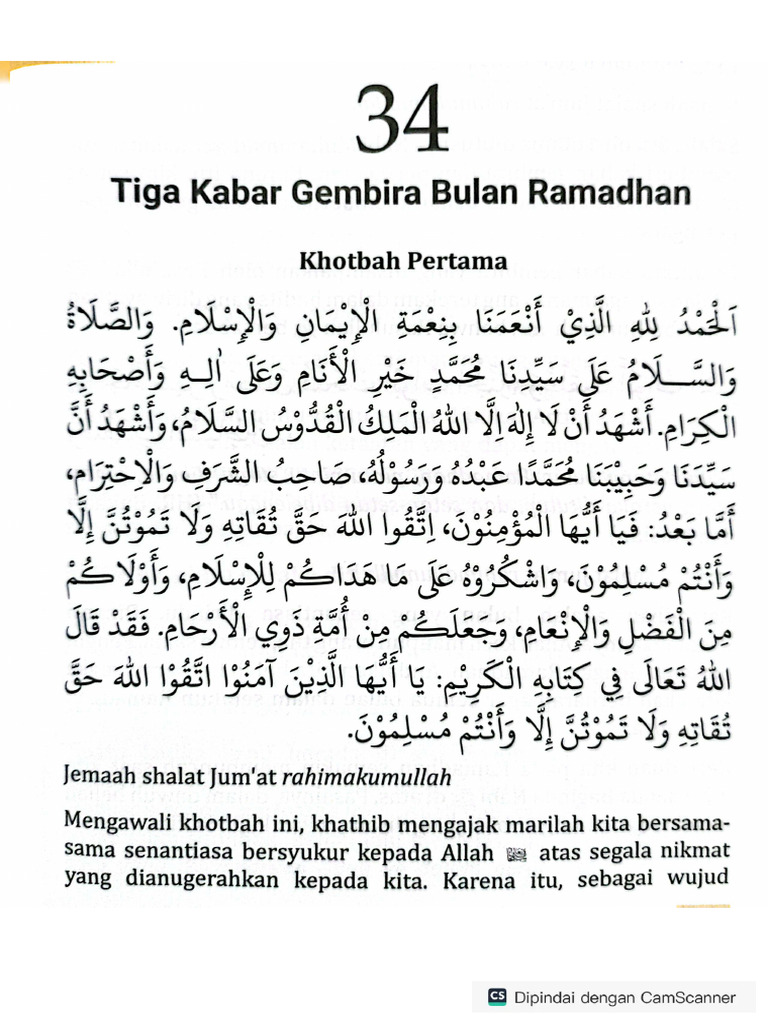 34
Tiga Kabar Gembira Bulan Ramadhan
Khotbah Pertama
اَلْحَمْدُ لِلهِ الَّذِيْ أَنْعَمَنَا بِنِعْمَةِ الْإِيمَانِ وَالْإِسْلَامِ. وَالصَّلَاةُ
وَالسَّـــلَامُ عَلَى سَيِّدِنَا مُحَمَّدٍ خَيْرِ الْأَنَامِ وَعَلَى اٰلِـهِ وَأَصْحَابِهِ
الْكِرَامِ. أَشْهَدُ أَنْ لَا إِلٰهَ اِلَّا اللهُ الْمَلِكُ الْقُدُّوْسُ السَّلَامُ، وَأَشْهَدُ أَنَّ
سَيِّدَنَا وَحَبِيْبَنَا مُحَمَّدًا عَبْدُهُ وَرَسُوْلُهُ، صَاحِبُ الشَّرَفِ وَالْاحْتِرَامِ،
أَمَّا بَعْدُ: فَيَا أَيُّهَا الْمُؤْمِنُوْنَ، اِتَّقُوا اللهَ حَقَّ تُقَاتِهِ وَلَا تَمُوْتُنَّ إِلَّا
وَأَنْتُمْ مُسْلِمُوْنَ، وَاشْكُرُوْهُ عَلَى مَا هَدَاكُمْ لِلْإِسْلَامِ، وَأَوْلَاكُمْ
مِنَ الْفَضْلِ وَالْإِنْعَامِ، وَجَعَلَكُمْ مِنْ أُمَّةِ ذَوِي الْأَرْحَامِ. فَقَدْ قَالَ
اللهُ تَعَالَى فِي كِتَابِهِ الْكَرِيْمِ: يَا أَيُّهَا الَّذِيْنَ آمَنُوْا اتَّقُوْا اللهَ حَقَّ
تُقَاتِهِ وَلَا تَمُوْتُنَّ إِلَّا وَأَنْتُمْ مُسْلِمُوْنَ.
Jemaah shalat Jum'at rahimakumullah
Mengawali khotbah ini, khathib mengajak marilah kita bersama-
sama senantiasa bersyukur kepada Allah ﷻ atas segala nikmat
yang dianugerahkan kepada kita. Karena itu, sebagai wujud
CS Dipindai dengan CamScanner